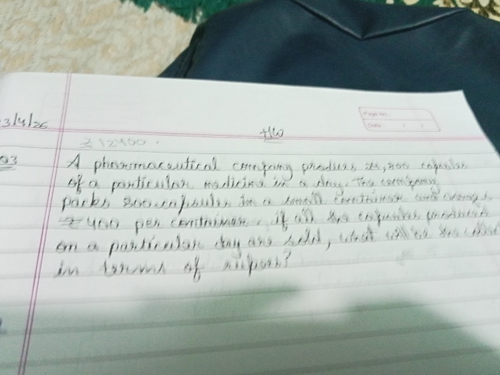 3/4/26
H/W
Page No.
Date: / /
₹ 12400.
Q3 A pharmaceutical company produces 24,800 capsules
of a particular medicine in a day. The company
packs 200 capsules in a small container and
₹ 400 per container. if all the capsules produced
on a particular day are sold, what will be the
in terms of rupees?